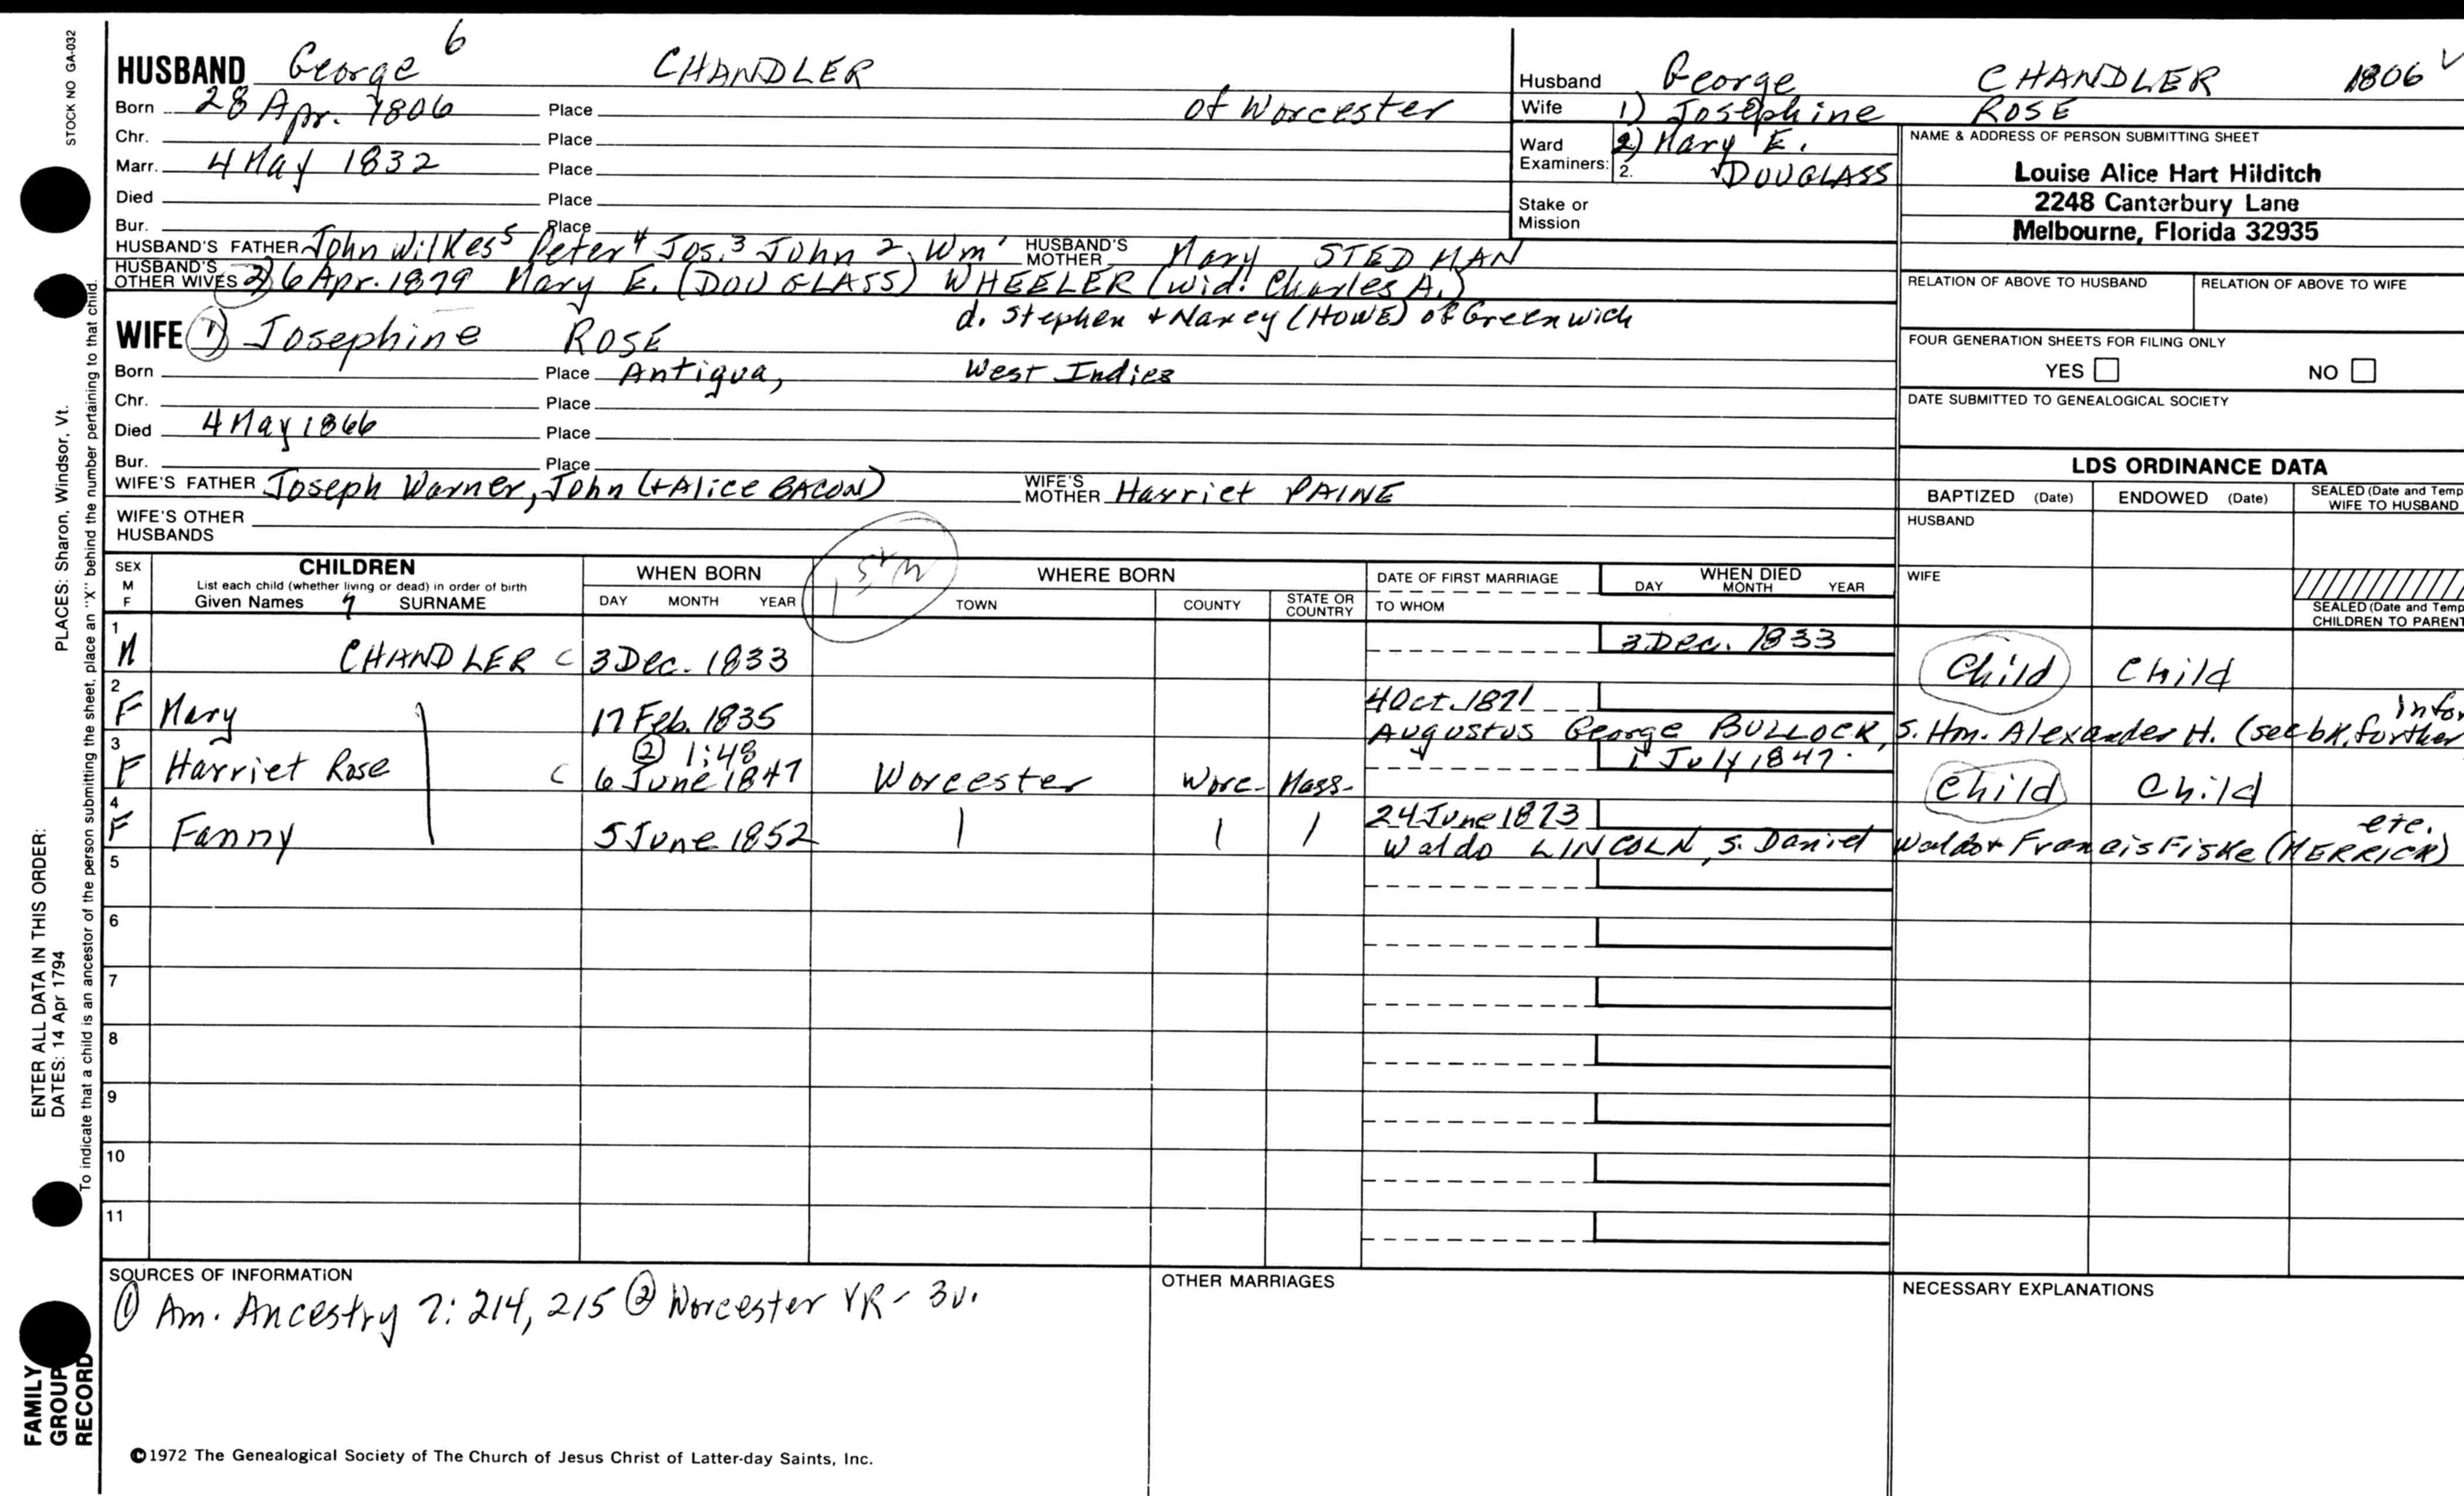 STOCK NO GA-032
HUSBAND George 6 CHANDLER
Born 28 Apr. 1806 Place of Worcester
Chr. Place
Marr. 4 May 1832 Place
Died Place
Bur. Place
HUSBAND'S FATHER John Wilkes 5 Peter 4 Jos. 3 John 2, Wm 1 HUSBAND'S MOTHER Mary STEDMAN
HUSBAND'S OTHER WIVES 2) 6 Apr. 1879 Mary E. (DOUGLASS) WHEELER (wid. Charles A.)
d. Stephen + Nancy (HOWE) of Greenwich
WIFE 1) Josephine ROSE
Born Place Antigua, West Indies
Chr. Place
Died 4 May 1866 Place
Bur. Place
WIFE'S FATHER Joseph Warner, John (+ Alice BACON) WIFE'S MOTHER Harriet PAINE
WIFE'S OTHER HUSBANDS
Husband George CHANDLER 1806 V
Wife 1) Josephine ROSE
Ward 2) Mary E.
Examiners: 2. DOUGLASS
Stake or
Mission
NAME & ADDRESS OF PERSON SUBMITTING SHEET
Louise Alice Hart Hilditch
2248 Canterbury Lane
Melbourne, Florida 32935
RELATION OF ABOVE TO HUSBAND RELATION OF ABOVE TO WIFE
FOUR GENERATION SHEETS FOR FILING ONLY
YES NO
DATE SUBMITTED TO GENEALOGICAL SOCIETY
LDS ORDINANCE DATA
BAPTIZED (Date) ENDOWED (Date) SEALED (Date and Temp
WIFE TO HUSBAND
HUSBAND
WIFE
SEALED (Date and Temp
CHILDREN TO PARENT
SEX
M
F
CHILDREN
List each child (whether living or dead) in order of birth
Given Names 7 SURNAME
WHEN BORN
DAY MONTH YEAR
WHERE BORN
TOWN COUNTY STATE OR COUNTRY
DATE OF FIRST MARRIAGE
TO WHOM
WHEN DIED
DAY MONTH YEAR
1 M CHANDLER C 3 Dec. 1833 3 Dec. 1833 Child Child
2 F Mary 17 Feb. 1835 4 Oct. 1871
Augustus George BULLOCK, s. Hon. Alexander H. (see bk. further infor
3 F Harriet Rose C ② 1:48
6 June 1847 Worcester Worc. Mass. 1 July 1847. Child Child
4 F Fanny 5 June 1852 24 June 1873 etc.
Waldo LINCOLN, s. Daniel Waldo + Francis Fiske (MERRICK)
5
6
7
8
9
10
11
SOURCES OF INFORMATION
① Am. Ancestry 7: 214, 215 ② Worcester VR - 3v.
OTHER MARRIAGES
NECESSARY EXPLANATIONS
©1972 The Genealogical Society of The Church of Jesus Christ of Latter-day Saints, Inc.
ENTER ALL DATA IN THIS ORDER:
DATES: 14 Apr 1794 PLACES: Sharon, Windsor, Vt.
To indicate that a child is an ancestor of the person submitting the sheet, place an "X" behind the number pertaining to that child.
FAMILY
GROUP
RECORD